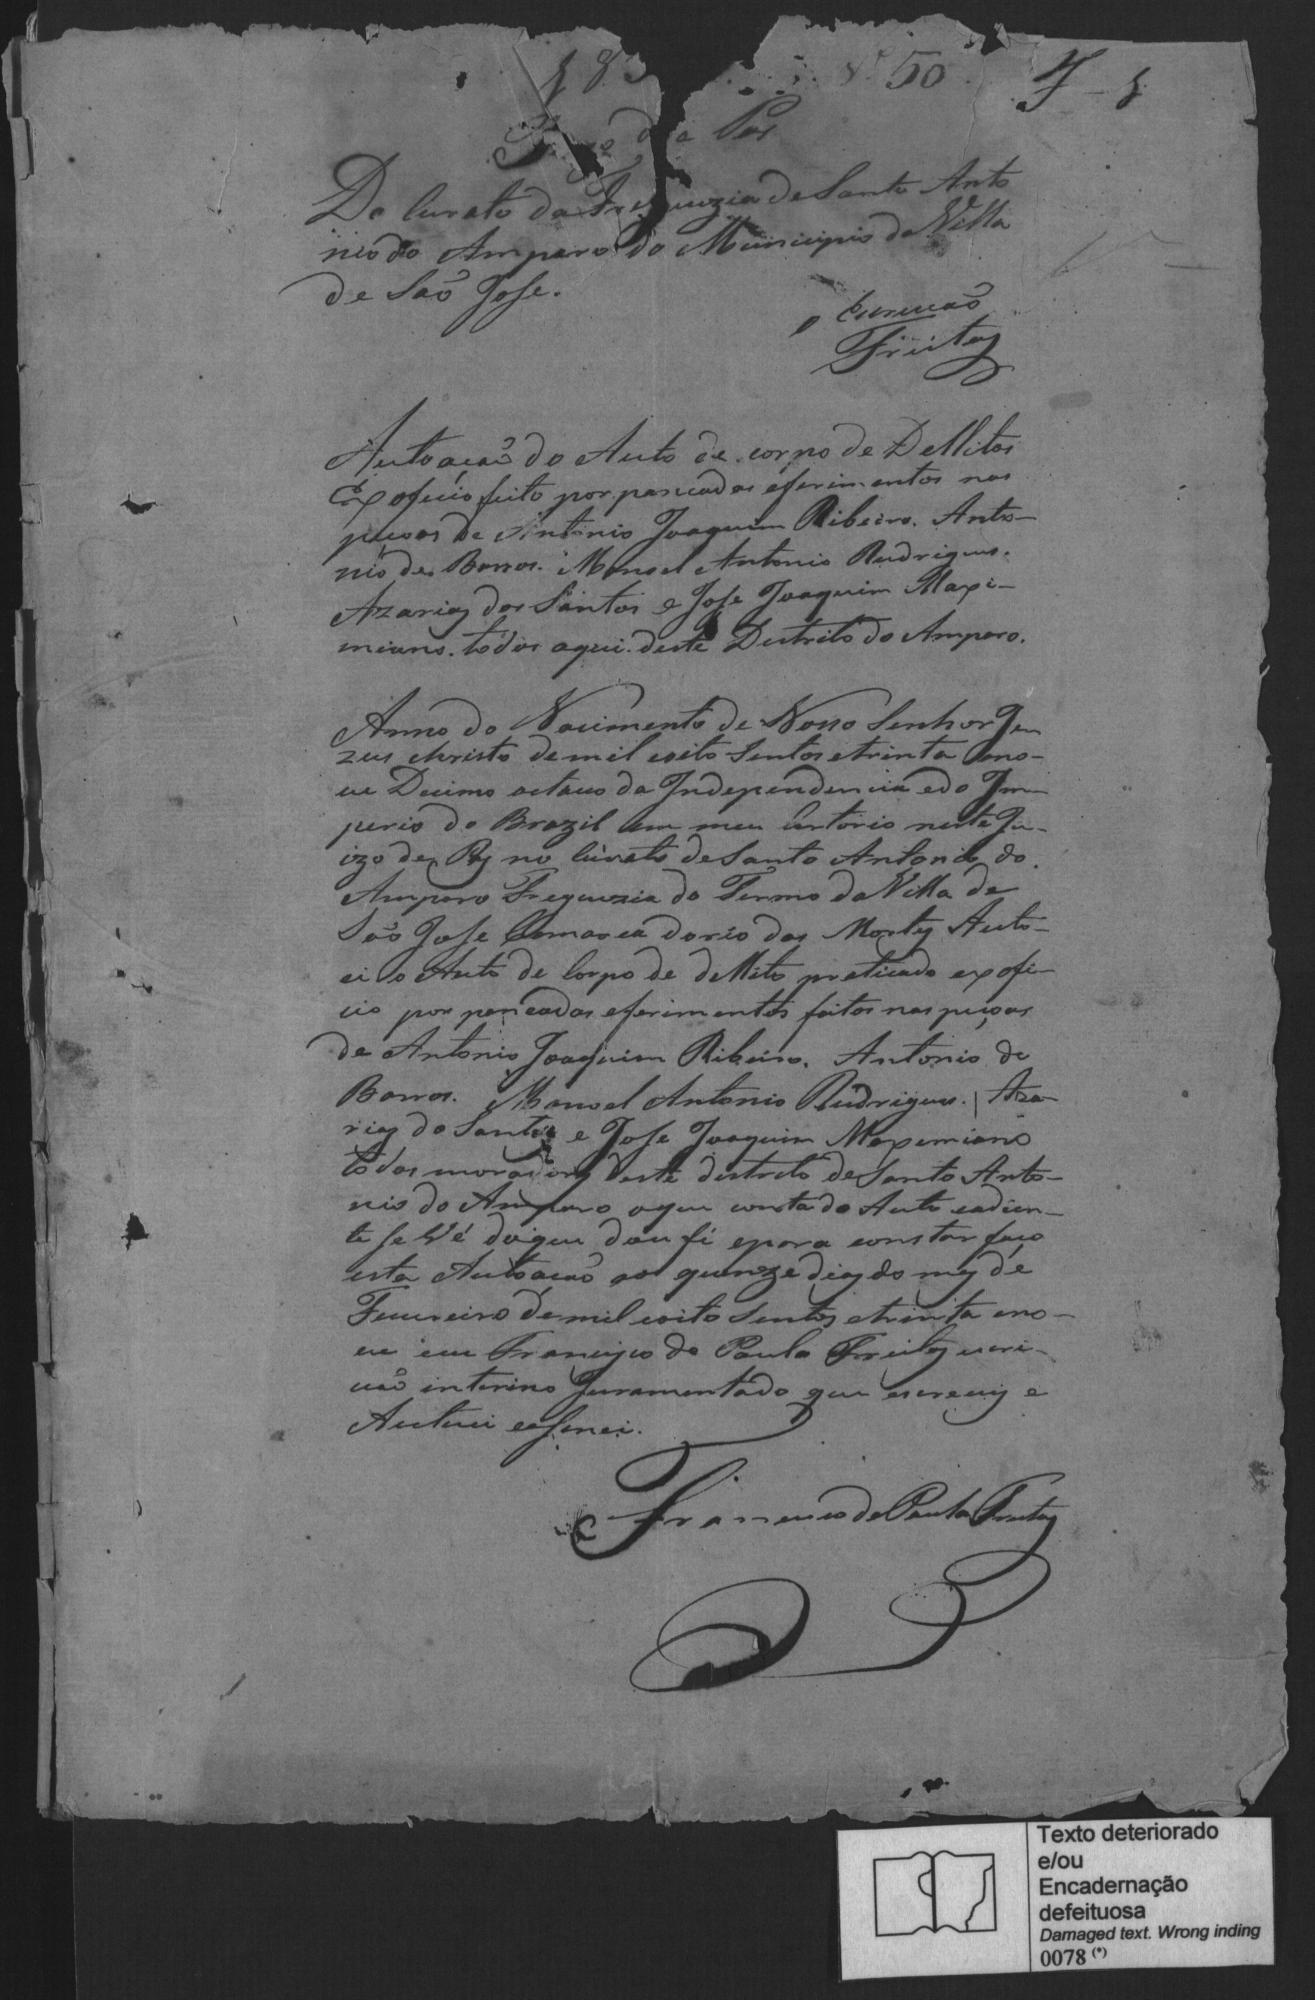 183 Nº 50 F-1
Juizo da Pas
Do Curato da Freguezia de Santo Anto
nio do Amparo do Municipio da Villa
de São Jose.
Escrivaõ
Freitas
Autoacaõ do Auto de corpo de Dellitos
Ex oficio feito por pancadas eferimentos nas
pesoas de Antonio Joaquim Ribeiro. Anto-
nio de Barros. Manoel Antonio Rudrigues.
Azarias dos Santos e Jose Joaquim Maxi-
miano. todos aqui deste Destrito do Amparo.
Anno do Nacimento de Nosso Senhor Je
zus Christo de mil oito Sentos etrinta eno-
ve Decimo octavo da Independencia edo Im
perio do Brazil em meu Cartorio neste Ju-
izo de Paz no Curato de Santo Antonio do
Amparo Freguezia do Termo da Villa de
São Jose Comarca do rio das Mortes Auto-
ei o Auto de Corpo de dellito praticado exofi-
cio por pancadas eferimentos feitos nas pesoas
de Antonio Joaquim Ribeiro. Antonio de
Barros. Manoel Antonio Rudrigues. Aza-
rias do Santos e Jose Joaquim Maxemiano
todos moradores deste destrito de Santo Anto-
nio do Amparo oque consta do Auto eadien-
te se Vé doque dou fé epara constar faço
esta Autoacaõ aos quinze dias do mes dé
Fevereiro de mil oito Sentos etrinta eno-
ve eu Francisco de Paula Freitas escri-
vaõ interino Juramentado que escrevy e
Autuei easinei.
Francisco de Paula Freitas
Texto deteriorado
e/ou
Encadernação
defeituosa
Damaged text. Wrong inding
0078 (*)